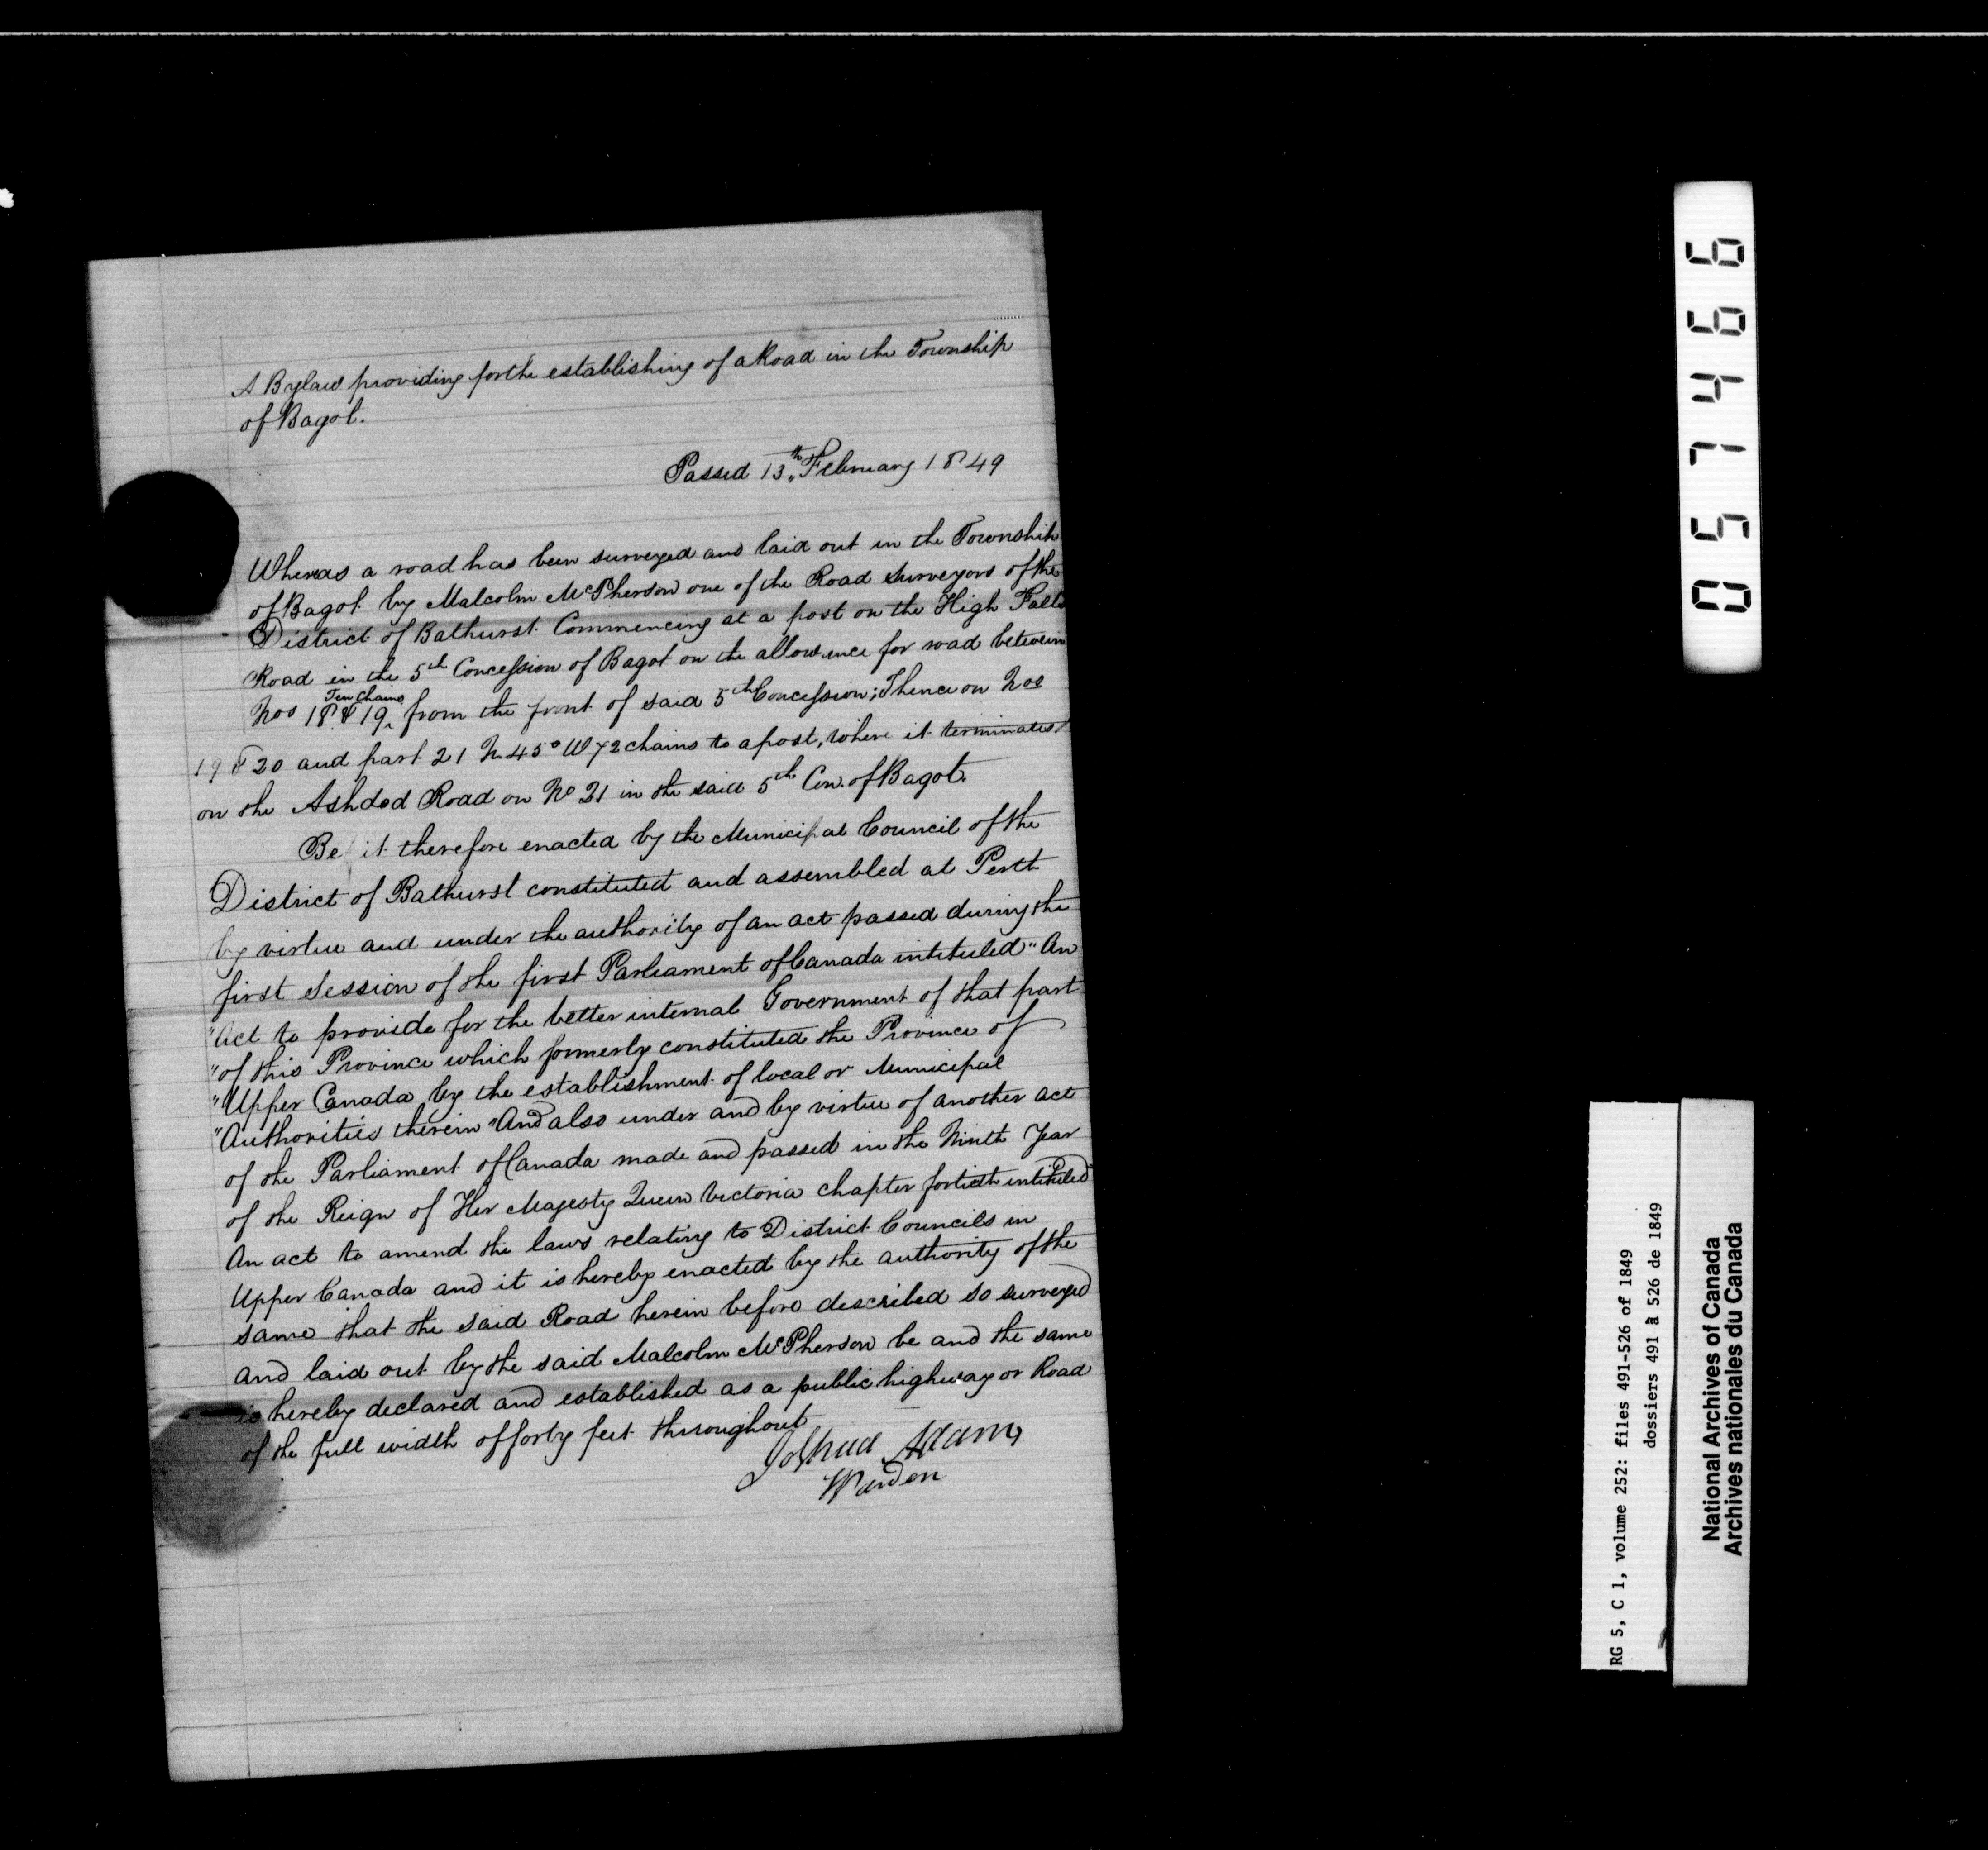 A Bylaw providing for the establishing of a Road in the Township
of Bagot.
Passed 13th February 1849
Whereas a road has been surveyed and laid out in the Township
of Bagot by Malcolm McPherson one of the Road Surveyors of the
District of Bathurst Commencing at a post on the High Falls
Road in the 5th Concession of Bagot on the allowance for road between
Nos 18 & 19 ^Ten chains from the front of said 5th Concession; Thence on Nos
19 & 20 and part 21 N. 45° W 72 chains to a post, where it terminates
on the Ashdod Road on No 21 in the said 5th Con. of Bagot.
Be it therefore enacted by the Municipal Council of the
District of Bathurst constituted and assembled at Perth
by virtue and under the authority of an act passed during the
first Session of the first Parliament of Canada intituled "An
"Act to provide for the better internal Government of that part
"of this Province which formerly constituted the Province of
"Upper Canada by the establishment of local or Municipal
"Authorities therein" And also under and by virtue of another act
of the Parliament of Canada made and passed in the Ninth Year
of the Reign of Her Majesty Queen Victoria chapter fortieth intituled
An act to amend the laws relating to District Councils in
Upper Canada and it is hereby enacted by the authority of the
same that the said Road herein before described so surveyed
and laid out by the said Malcolm McPherson be and the same
is hereby declared and established as a public highway or Road
of the full width of forty feet throughout
Joshua Adams
Warden
057466
RG 5, C 1, volume 252: files 491-526 of 1849
dossiers 491 à 526 de 1849
National Archives of Canada
Archives nationales du Canada